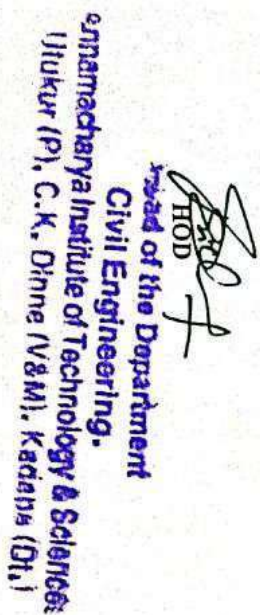 HOD
Head of the Department
Civil Engineering,
Annamacharya Institute of Technology & Sciences
Utukur (P), C.K. Dinne (V&M), Kadapa (Dt.)